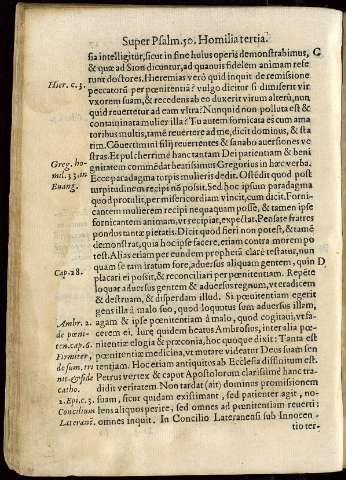 Super Psalm.50. Homilia tertia.
sia intelligitur, sicut in fine huius operis demonstrabimus,
& quæ ad Sion dicuntur, ad quamuis fidelem animam refe
runt doctores. Hieremias verò quid inquit de remissione
peccatorũ per pœnitentiã? vulgo dicitur si dimiserit vir
vxorem suam, & recedens ab eo duxerit virum alterũ, nun
quid reuertetur ad eum vltra? Nunquid non polluta est &
contaminata mulier illa? Tu autem fornicata es cum ama
toribus multis, tamẽ reuertere ad me, dicit dominus, & sta
tim. Cõuertimini filij reuertentes & sanabo auersiones ve
stras. Et pulcherrimè hanc tantam Dei patientiam & beni
gnitatem commẽdat beatissimus Gregorius in hæc verba.
Ecce paradigma turpis mulieris dedit. Ostẽdit quòd post
turpitudinem recipi nõ possit. Sed hoc ipsum paradigma
quod protulit, per misericordiam vincit, cum dicit. Forni-
cantem mulierem recipi nequaquam posse, & tamen ipse
fornicantem animam, vt recipiat, expectat. Pensate fratres
pondus tantæ pietatis. Dicit quod fieri non potest, & tamẽ
demonstrat, quia hoc ipse facere, etiam contra morem po
test. Alias etiam per eundem prophetã clarè testatur, nun
quam se tam iratum fore, aduersus aliquam gentem, quin
placari possit, & reconciliari per pœnitentiam. Repẽte
loquar aduersus gentem & aduersus regnum, vt eradicem
& destruam, & disperdam illud. Si pœnitentiam egerit
gens illa à malo suo, quod loquutus sum aduersus eam,
agam & ipse pœnitentiam à malo, quod cogitaui, vt fa-
cerem ei. Iure quidem beatus Ambrosius, inter alia pœ-
nitentiæ elogia & præconia, hoc quoque dixit: Tanta est
pœnitentiæ medicina, vt mutare videatur Deus suam sen
tentiam. Hoc etiam antiquitus ab Ecclesia diffinitum est.
Petrus vertex & caput Apostolorum clarissimè hanc tra-
didit veritatem. Non tardat (ait) dominus promissionem
suam, sicut quidam existimant, sed patienter agit, no-
lens aliquos perire, sed omnes ad pœnitentiam reuerti:
omnes inquit. In Concilio Lateranensi sub Innocen-
tio ter-
C
D
Hier. c. 3.
Greg. ho-
mil. 33. in
Euang.
Cap. 18.
Ambr. 2.
de pœni-
ten. cap. 6.
Firmiter,
de sum. tri
nit. & fide
catho.
2. Epi. c. 3.
Concilium
Lateranẽ.